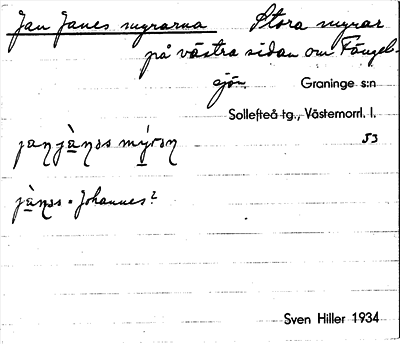 Jan Janes myrarna Stora myrar
på västra sidan om Fängel-
sjön.
Graninge s:n
Sollefteå tg., Västernorrl. l.
53
jaŋjànəs mýrəŋ
jànəs = Johannes?
Sven Hiller 1934